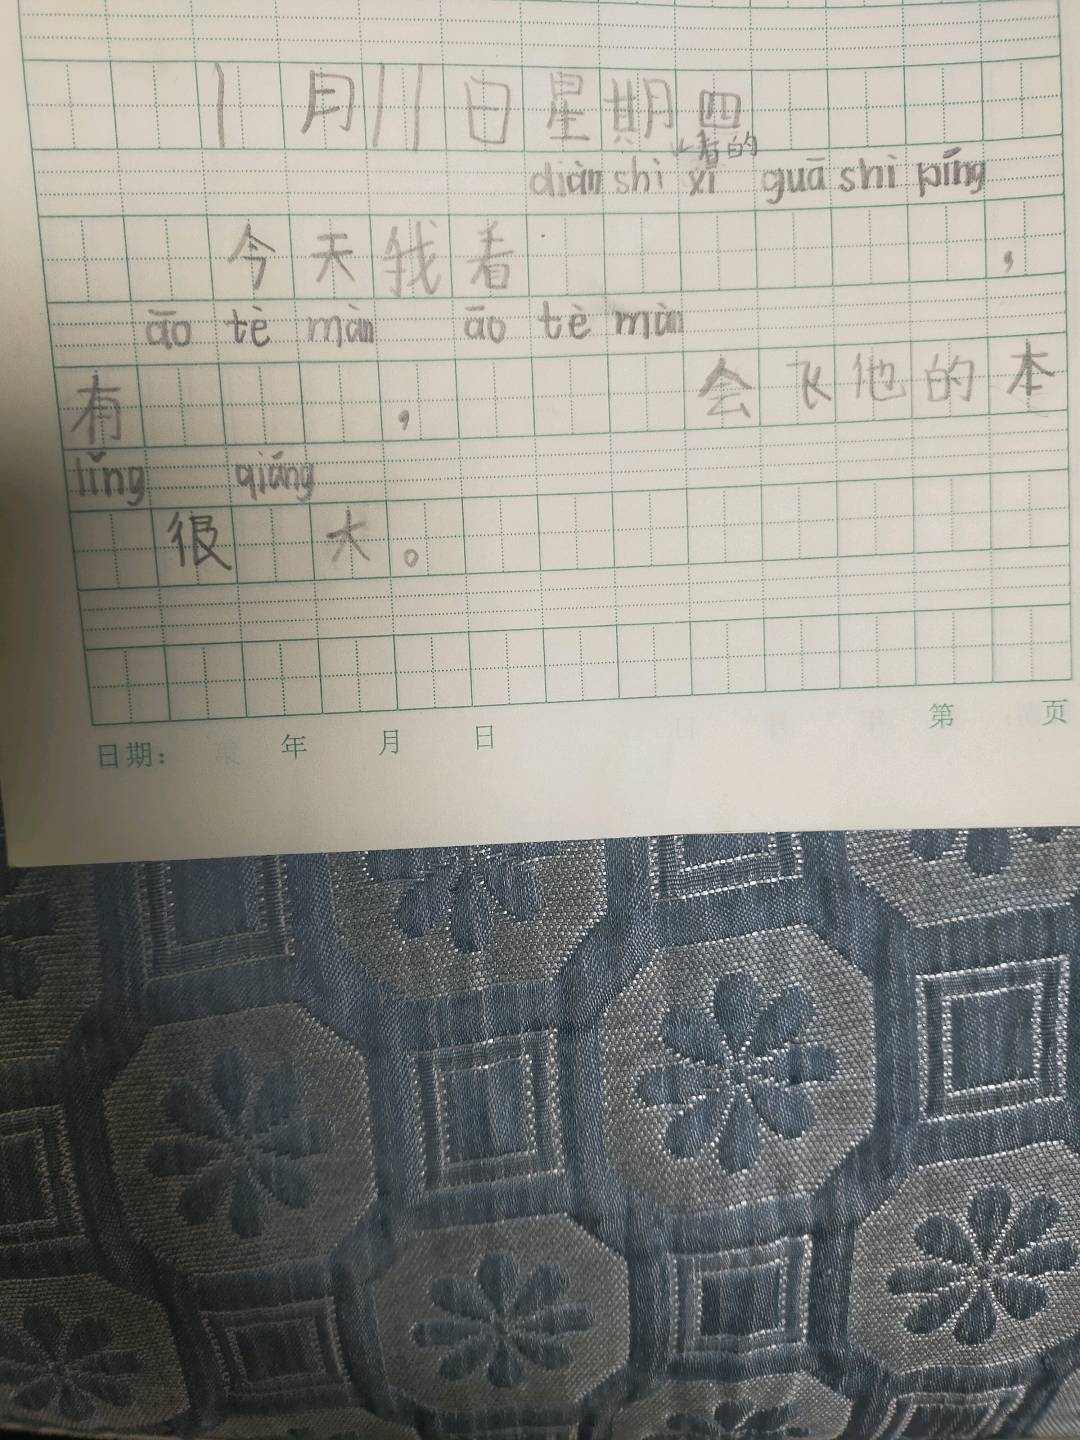 1月11日星期四
看的
diàn shì xì guā shì píng
今天我看，
āo tè màn āo tè màn
有，会飞他的本
lǐng qiáng
很大。
日期： 年 月 日 第 页